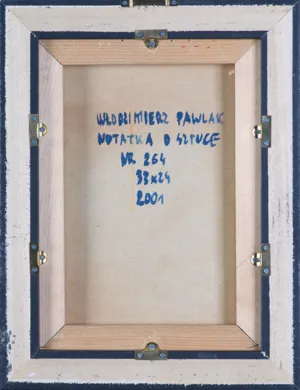 WŁODZIMIERZ PAWLAK
NOTATKA O SZTUCE
NR 264
33x24
2001